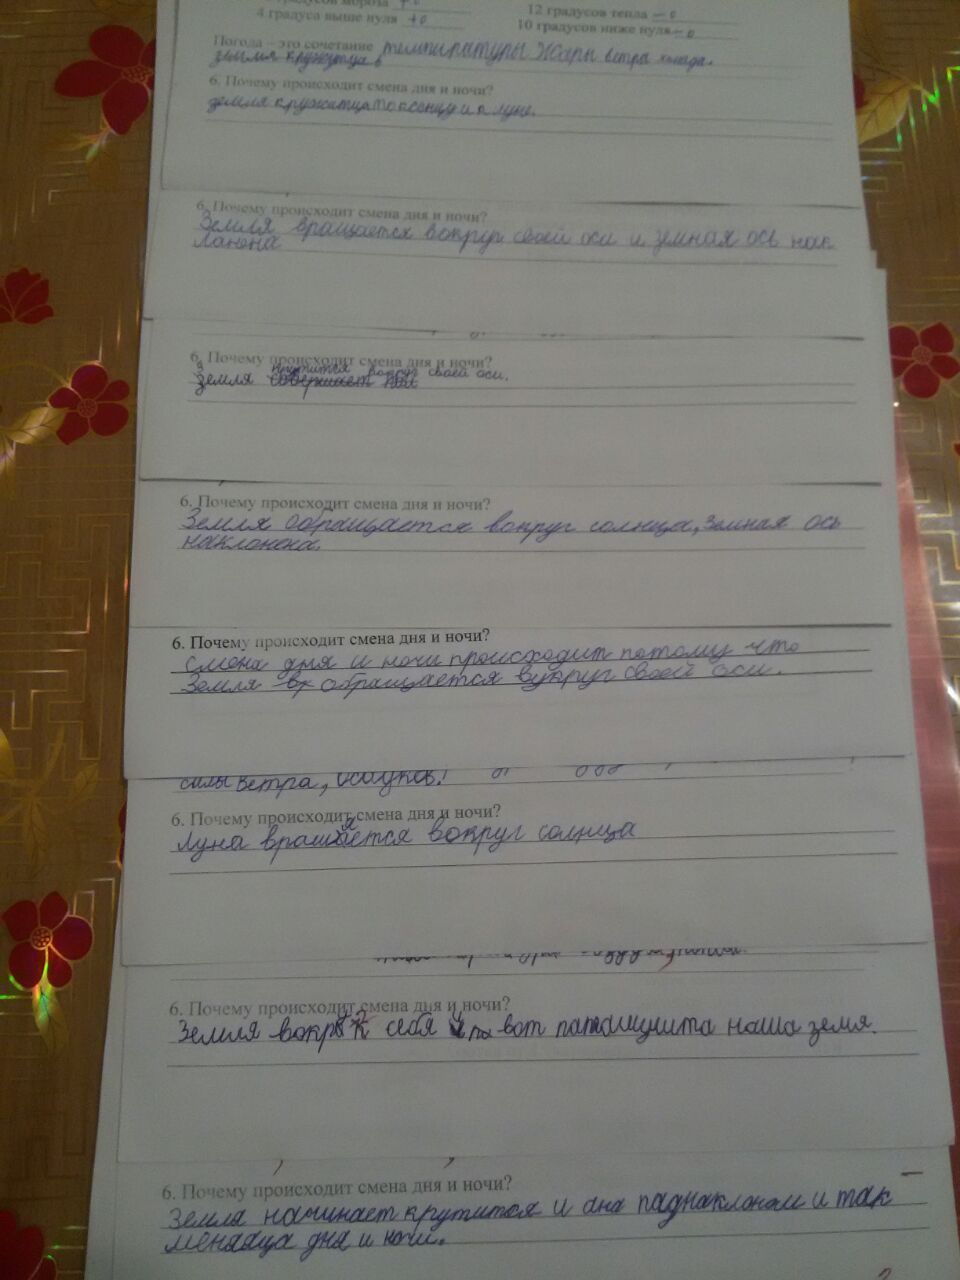 градусов мороза + 0
12 градусов тепла – 0
4 градуса выше нуля +0
10 градусов ниже нуля – 0
Погода – это сочетание температуры жары ветра холода.
земля кружутца в
6. Почему происходит смена дня и ночи?
земля кружитца по и к луне.
6. Почему происходит смена дня и ночи?
Земля вращается вокруг своей оси и земная ось нак
лонена
6. Почему происходит смена дня и ночи?
крутится вокруг своей оси.
земля совершает
6. Почему происходит смена дня и ночи?
Земля обращается вокруг солнца, земная ось
наклонена.
6. Почему происходит смена дня и ночи?
смена дня и ночи происходит потому что
Земля вх обращается вукруг своей оси.
силы ветра, осадков!
6. Почему происходит смена дня и ночи?
Луна вращяется вокруг солнца
6. Почему происходит смена дня и ночи?
Земля себя вот патамушта наша земя.
6. Почему происходит смена дня и ночи?
Земля начинает крутится и ана паднаклоном и так
меняаца дня и ночи.